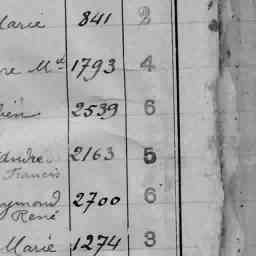 Marie 841 2
re Md 1793 4
bien 2539 6
André 2163 5
Francis
Raymond 2700 6
René
Marie 1274 3